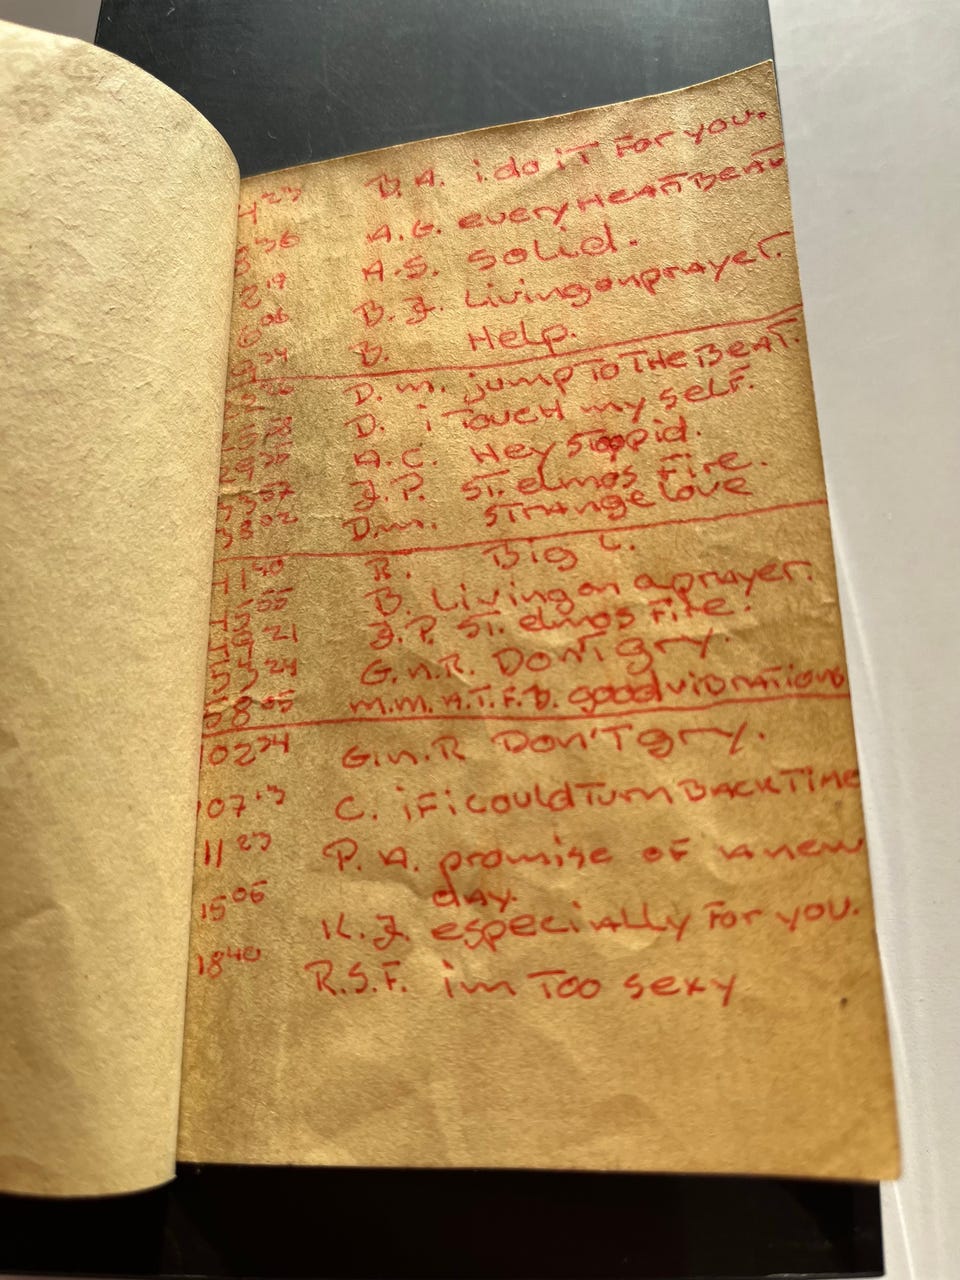 4 23 B.A. i do iT For you.
3 36 A.G. every HeArTBeAT
2 19 A.S. Solid.
6 06 B.J. Livingonprayer.
34 B. Help.
D.m. jump To THe BeAT.
D. i TOUCH my self.
A.C. Hey STOOpid.
57 J.P. ST. elmos Fire.
38 02 D.m. STrAnge Love
41 40 R. Big L.
45 55 B. Living on a prayer.
21 J.P. ST. elmos Fire.
53 24 G.n.R. Don'T gry.
58 05 m.m. A.T.F.B. good vibrATions
1 02 34 G.n.R Don'T gry.
107 13 C. iF i COUld Turn BACK Time
111 23 P.A. promise oF A new
day.
115 06 K.J. especiAlly For you.
118 40 R.S.F. i'm Too sexy